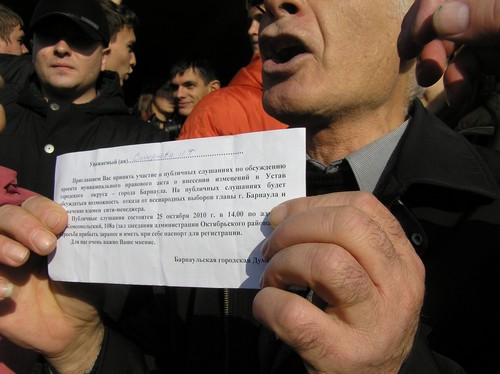 Уважаемый (ая)
Приглашаем Вас принять участие в публичных слушаниях по обсуждению
проекта муниципального правового акта о внесении изменений в Устав
городского округа – города Барнаула. На публичных слушаниях будет
обсуждаться возможность отказа от всенародных выборов главы г. Барнаула и
назначение взамен сити-менеджера.
Публичные слушания состоятся 25 октября 2010 г. в 14.00 по
Комсомольский, 108а (зал заседания администрации Октябрьского района)
просьба прибыть заранее и иметь при себе паспорт для регистрации.
Для нас очень важно Ваше мнение.
Барнаульская городская Дума